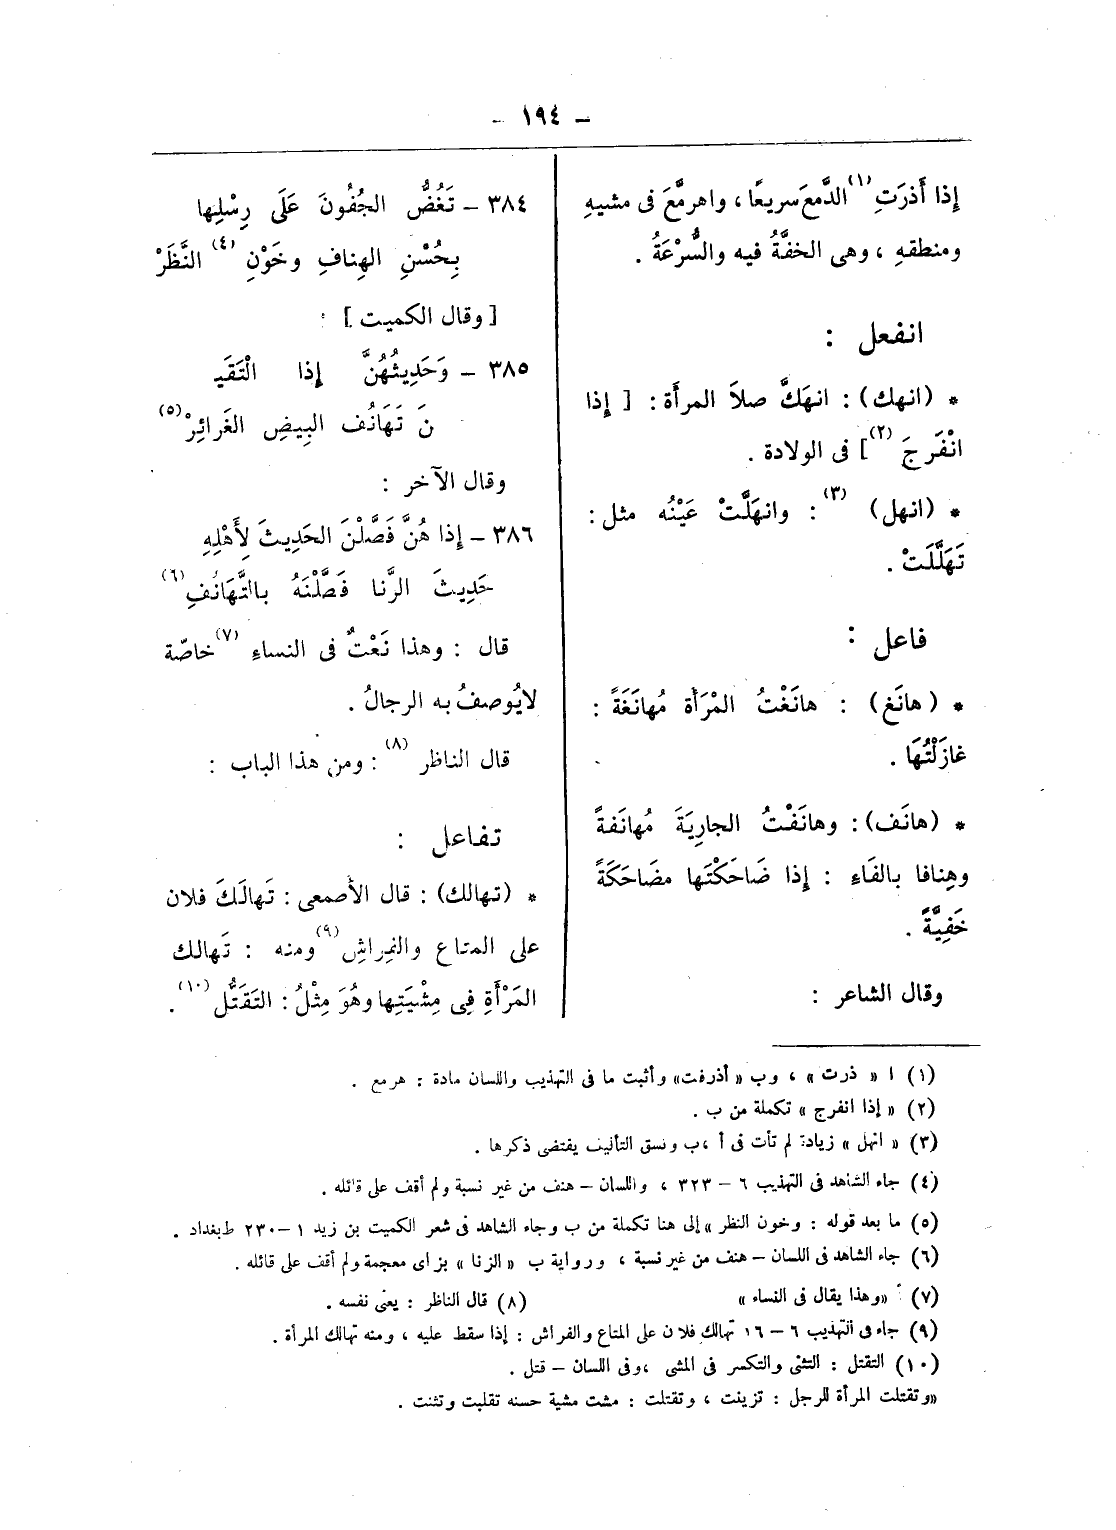 - ١٩٤ -
إذا أذرَتِ (١) الدَّمعَ سريعًا ، واهرمَّعَ فى مشيهِ
ومنطقهِ ، وهى الخفَّةُ فيه والسُّرْعَةُ .
انفعل :
* (انهك) : انهَكَّ صلاَ المرأة : [ إذا
انْفَرجَ (٢) ] فى الولادة .
* (انهل) (٣) : وانهَلَّتْ عَيْنُه مثل :
تَهَلَّلَتْ .
فاعل :
* (هانَغ) : هانَغْتُ المْرَأة مُهانَغَةً :
غازَلْتُهَا .
* (هانَف) : وهانَفْتُ الجارِيَةَ مُهانَفةً
وهِنافا بالفَاءِ : إذا ضَاحَكْتَها مضَاحَكَةً
خَفِيَّةً .
وقال الشاعر :
٣٨٤ - تَغُضُّ الجُفُونَ عَلَى رِسْلِها
بِحُسْنِ الهِنافِ وخَوْنِ (٤) النَّظَرْ
[ وقال الكميت ] :
٣٨٥ - وَحَدِيثُهُنَّ إذا الْتَقَيـ
نَ تَهَانُف البِيضِ الغَرائِرْ (٥)
وقال الآخر :
٣٨٦ - إذا هُنَّ فَصَّلْنَ الحَدِيثَ لِأَهْلِهِ
حَدِيثَ الرَّنا فَصَّلْنَهُ بالتَّهَانُفِ (٦)
قال : وهذا نَعْتٌ فى النساءِ (٧) خاصّة
لايُوصفُ به الرجالُ .
قال الناظر (٨) : ومن هذا الباب :
تفاعل :
* (تهالك) : قال الأصمعى : تَهالَكَ فلان
على المتاع والفِراشِ (٩) ومنه : تَهالك
المَرْأَةِ فِى مِشْيَتِها وهُوَ مِثْلُ : التَقَتُّل (١٠) .
(١) ا « ذرت » ، وب « أذرفت» وأثبت ما فى التهذيب واللسان مادة : هرمع .
(٢) « إذا انفرج » تكملة من ب .
(٣) « انهل » زيادة لم تأت فى أ ، ب ونسق التأليف يقتضى ذكرها .
(٤) جاء الشاهد فى التهذيب ٦ - ٣٢٣ ، واللسان - هنف من غير نسبة ولم أقف على قائله .
(٥) ما بعد قوله : وخون النظر » إلى هنا تكملة من ب وجاء الشاهد فى شعر الكميت بن زيد ١ - ٢٣٠ ط بغداد .
(٦) جاء الشاهد فى اللسان - هنف من غير نسبة ، ورواية ب « الزنا » بزاى معجمة ولم أقف على قائله .
(٧) أ «وهذا يقال فى النساء » (٨) قال الناظر : يعنى نفسه .
(٩) جاء فى التهذيب ٦ - ١٦ تهالك فلان على المتاع والفراش : إذا سقط عليه ، ومنه تهالك المرأة .
(١٠) التقتل : التثنى والتكسر فى المشى ، وفى اللسان - قتل .
«وتقتلت المرأة للرجل : تزينت ، وتقتلت : مشت مشية حسنه تقلبت وتثنت .